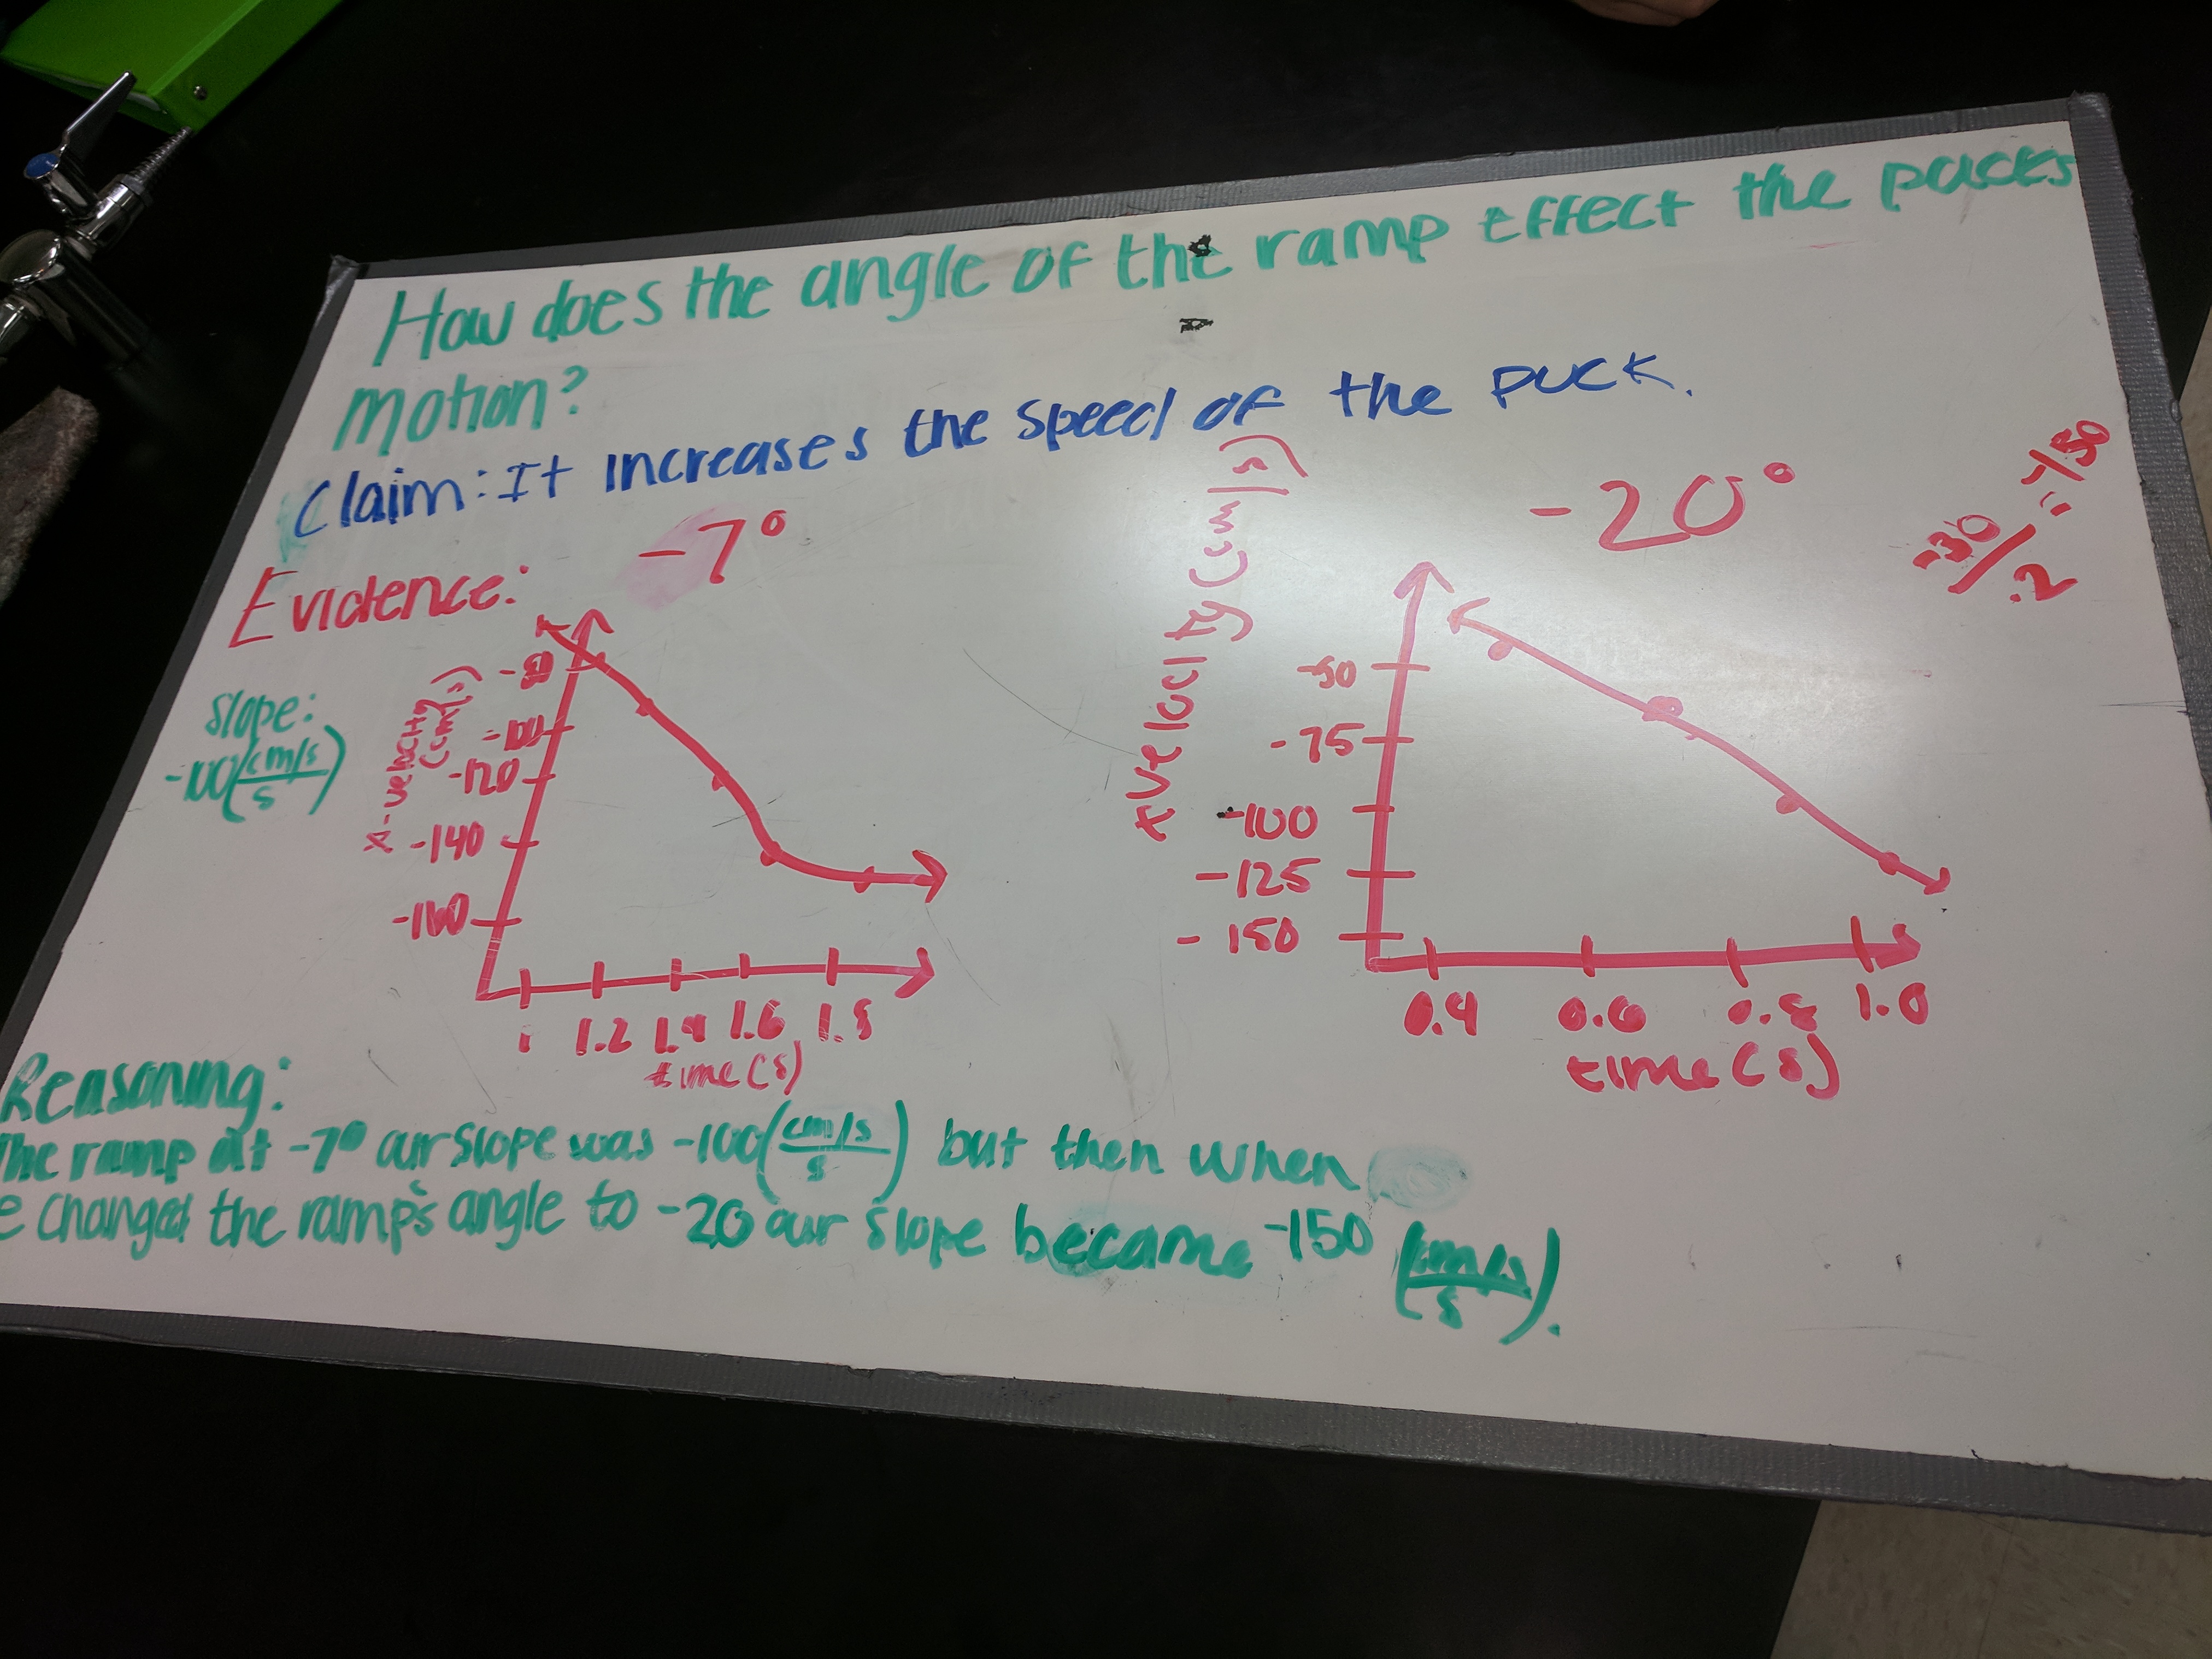 How does the angle of the ramp effect the pucks
motion?
Claim: It increases the speed of the puck.
Evidence:
-7°
-20°
-30/.2 = -150
slope:
-100(cm/s/s)
x-velocity
(cm/s)
-120
-140
-160
1 1.2 1.4 1.6 1.8
time (s)
xvelocity (cm/s)
-50
-75
-100
-125
-150
0.4 0.6 0.8 1.0
time (s)
Reasoning:
The ramp at -7° our slope was -100(cm/s/s) but then when
e changed the ramp's angle to -20 our slope became -150 (cm/s/s).